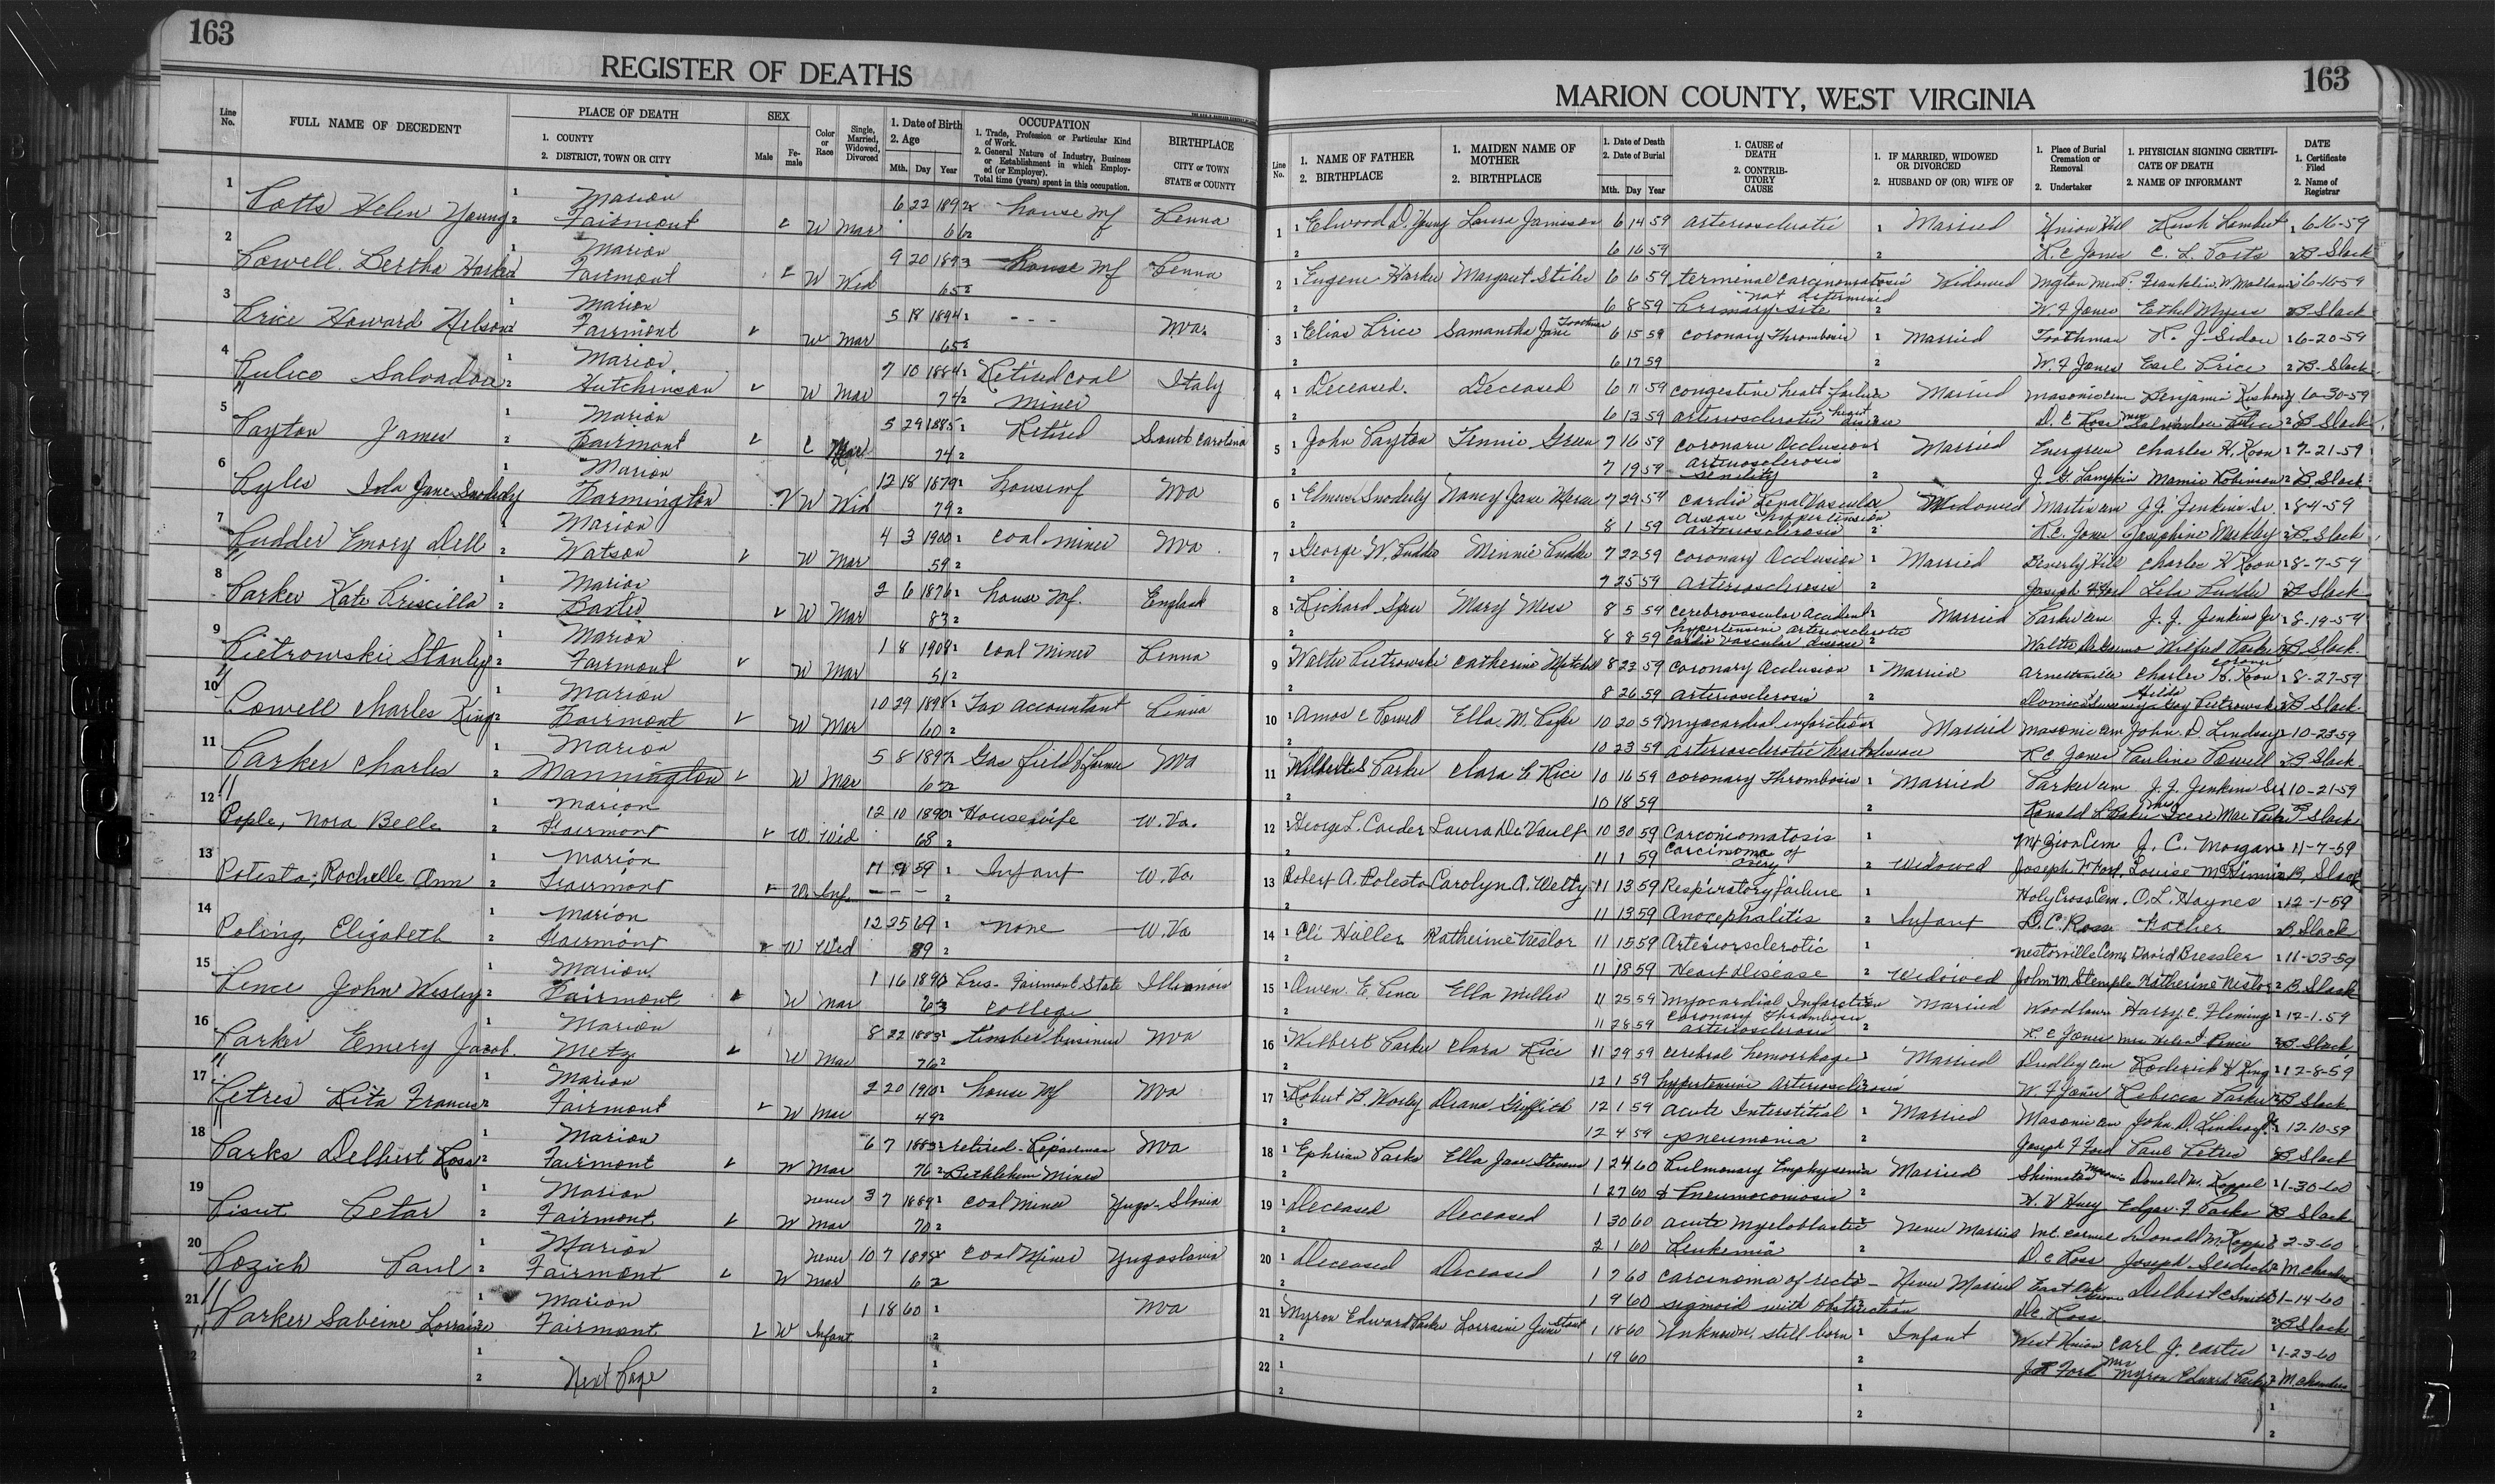 163
REGISTER OF DEATHS
Line No.
FULL NAME OF DECEDENT
PLACE OF DEATH
1. COUNTY
2. DISTRICT, TOWN OR CITY
SEX
Male
Female
Color or Race
Single, Married, Widowed, Divorced
1. Date of Birth
2. Age
Mth. Day Year
OCCUPATION
1. Trade, Profession or Particular Kind of Work.
2. General Nature of Industry, Business or Establishment in which Employed (or Employer).
Total time (years) spent in this occupation.
BIRTHPLACE
CITY or TOWN
STATE or COUNTY
1 Potts Helen Young 1 Marion 6 22 1892 house wf Penna
2 Fairmont W Mar 66
2 Powell Bertha Harker 1 Marion 9 20 1893 house wf Penna
2 Fairmont W Wid 65
3 Price Howard Nelson 1 Marion 5 18 1894 - - - Wva.
2 Fairmont W Mar 65
4 Pulice Salvadore 1 Marion 7 10 1884 Retired coal miner Italy
2 Hutchinson W Mar 74
5 Payton James 1 Marion 5 29 1885 Retired South Carolina
2 Fairmont C Mar 74
6 Pyles Iola Jane Snoderly 1 Marion 12 18 1879 housewf Wva
2 Farmington W Wid 79
7 Pudder Emory Dell 1 Marion 4 3 1900 coal miner Wva
2 Watson W Mar 59
8 Parker Kate Priscilla 1 Marion 2 6 1876 house wf. England
2 Baxter W Mar 83
9 Pietrowski Stanley 1 Marion 1 8 1908 coal miner Penna
2 Fairmont W Mar 51
10 Powell Charles King 1 Marion 10 29 1898 Tax accountant Penna
2 Fairmont W Mar 60
11 Parker Charles 1 Marion 5 8 1897 Gas field & farmer Wva
2 Mannington W Mar 62
12 Pople, Nora Belle 1 Marion 12 10 1890 Housewife W.Va.
2 Fairmont W. Wid 68
13 Potesta, Rochelle Ann 1 Marion 11 9 59 Infant W.Va
2 Fairmont W. Inf. - - -
14 Poling, Elizabeth 1 Marion 12 25 69 none W.Va
2 Fairmont W Wid 89
15 Pence John Wesley 1 Marion 1 16 1890 Pres- Fairmont State College Illinois
2 Fairmont W Mar 63
16 Parker Emery Jacob. 1 Marion 8 22 1883 timber business Wva
2 Metz W Mar 76
17 Petres Rita Frances 1 Marion 2 20 1910 house wf Wva
2 Fairmont W Mar 49
18 Parks Delbert Ross 1 Marion 6 7 1883 retired - Repairman Wva
2 Fairmont W Mar 76 Bethlehem Mines
19 Petar 1 Marion never 3 7 1889 coal miner Yugo-Slavia
2 Fairmont W Mar 70
20 Pozich Paul 1 Marion never 10 7 Coal Miner Yugoslavia
2 Fairmont W Mar 62
21 Parker Sabeine Lorraine 1 Marion 1 18 60 Wva
2 Fairmont W Infant
22 1
2 Next Page
163
MARION COUNTY, WEST VIRGINIA
Line No.
1. NAME OF FATHER
2. BIRTHPLACE
1. MAIDEN NAME OF MOTHER
2. BIRTHPLACE
1. Date of Death
2. Date of Burial
Mth. Day Year
1. CAUSE of DEATH
2. CONTRIBUTORY CAUSE
1. IF MARRIED, WIDOWED OR DIVORCED
2. HUSBAND OF (OR) WIFE OF
1. Place of Burial Cremation or Removal
2. Undertaker
1. PHYSICIAN SIGNING CERTIFICATE OF DEATH
2. NAME OF INFORMANT
DATE
1. Certificate Filed
2. Name of Registrar
1 Elwood D. Young Laura Jamison 6 14 59 arteriosclerotic Married Union Hill Rush Lambert 6-16-59
2 6 16 59 R.C. Jones C. L. Potts B Slack
2 Eugene Harker Margaret Stiles 6 6 59 terminal carcinomatosis Widowed 6-16-59
2 6 8 59 not determined primary site W. F Jones Ethel Myers B Slack
3 Elias Price Samantha Jane Toothman 6 15 59 coronary Thrombosis Married Toothman 6-20-59
2 6 17 59 W. F Jones Earl Price B. Slack
4 Deceased. Deceased 6 11 59 congestive heart failure Married Masonic cem Benjamin 6-30-59
2 6 13 59 arteriosclerotic heart disease D. C Ross Mrs B Slack
5 John Payton Tinnie Green 7 16 59 coronary occlusion Married Evergreen Charles H. Koon 7-21-59
2 7 19 59 arteriosclerosis senility J. G. Lampkin Mamie Robinson B. Slack
6 Elmer Snoderly Nancy Jane 7 29 59 cardio renal vascular Widowed Martin cem J.J. Jenkins Sr. 8-4-59
2 8 1 59 disease hypertension arteriosclerosis R.C. Jones Josephine Markley B. Slack
7 George W. Pudder Minnie Pudder 7 22 59 coronary occlusion Married Beverly Hill Charles H Koon 8-7-59
2 7 25 59 arteriosclerosis Joseph F Ford Lela Pudder B Slack
8 Richard Mary 8 5 59 cerebrovascular accident Married Parker cem J. J. Jenkins Jr 8-19-59
2 8 8 59 hypertensive arteriosclerotic cardio vascular disease Wilfred Parker B. Slack.
9 Walter Pietrowski Catherine Mitchell 8 23 59 coronary occlusion Married Arnettsville Charles H. Koon coroner 8-27-59
2 8 26 59 arteriosclerosis Hilda Pietrowski B Slack.
10 Amos C Powell Ella M. 10 20 59 myocardial infarction Married Masonic cem John. D. Lindsay 10-23-59
2 10 23 59 arteriosclerotic heart disease R C Jones Pauline Powell B Slack.
11 Wilbert S Parker Clara C Rice 10 16 59 coronary thrombosis Married Parker cem J. J. Jenkins 10-21-59
2 10 18 59 Mrs B Slack
12 George L. Carder Laura DeVault 10 30 59 Carcinomatosis Mt Zion Cem J. C. Morgan 11-7-59
2 11 1 59 carcinoma of Widowed Joseph F. Ford, Louise B. Slack
13 Robert A. Potesta Carolyn A. Welty 11 13 59 Respiratory failure Holy Cross Cem. O.L. Haynes 12-1-59
2 11 13 59 Anocephalitis Infant D.C. Ross Father B. Slack
14 Eli Haller Katherine Nestor 11 15 59 Arteriorsclerotic Nestorville Cem. David Bressler 11-23-59
2 11 18 59 Heart Disease Widowed John M. Stemple Katherine Nestor B. Slack
15 Owen E. Pence Ella Miller 11 25 59 Myocardial Infarction Married Woodlawn Harry C. Fleming 12-1-59
2 11 28 59 coronary thrombosis arteriosclerosis R. C Jones Mrs Helen Pence B. Slack
16 Wilbert Parker Clara Rice 11 29 59 cerebral hemorrhage Married Dudley cem Roderick 12-8-59
2 12 1 59 hypertensive arteriosclerosis W. F Jones Rebecca Parker B Slack
17 Robert B. Worley Diana Griffith 12 1 59 acute Interstitial Married Masonic cem John. D. Lindsay 12-10-59
2 12 4 59 pneumonia Joseph F Ford Paul Petres B Slack
18 Ephrian Parks Ella Jane Stevens 1 24 60 Pulmonary Emphysema Married Shinnston Masonic Donald M. Koppel 1-30-60
2 1 27 60 & Pneumoconiosis Edgar. F. Parks B Slack
19 Deceased Deceased 1 30 60 acute myeloblastic never Married Mt. Carmel Donald M. Koppel 2-3-60
2 2 1 60 Leukemia D. C Ross Joseph M Chambers
20 Deceased Deceased 1 7 60 carcinoma of recto- Never Married East Oak Delbert C Smith 1-14-60
2 1 9 60 sigmoid with obstruction D.C. Ross B Slack
21 Myron Edward Parker Lorraine June Stout 1 18 60 Unknown still born Infant West Union Carl J. Carter 1-23-60
2 1 19 60 J F Ford Mrs Myron Edward Parker M. Chambers
22 1
2